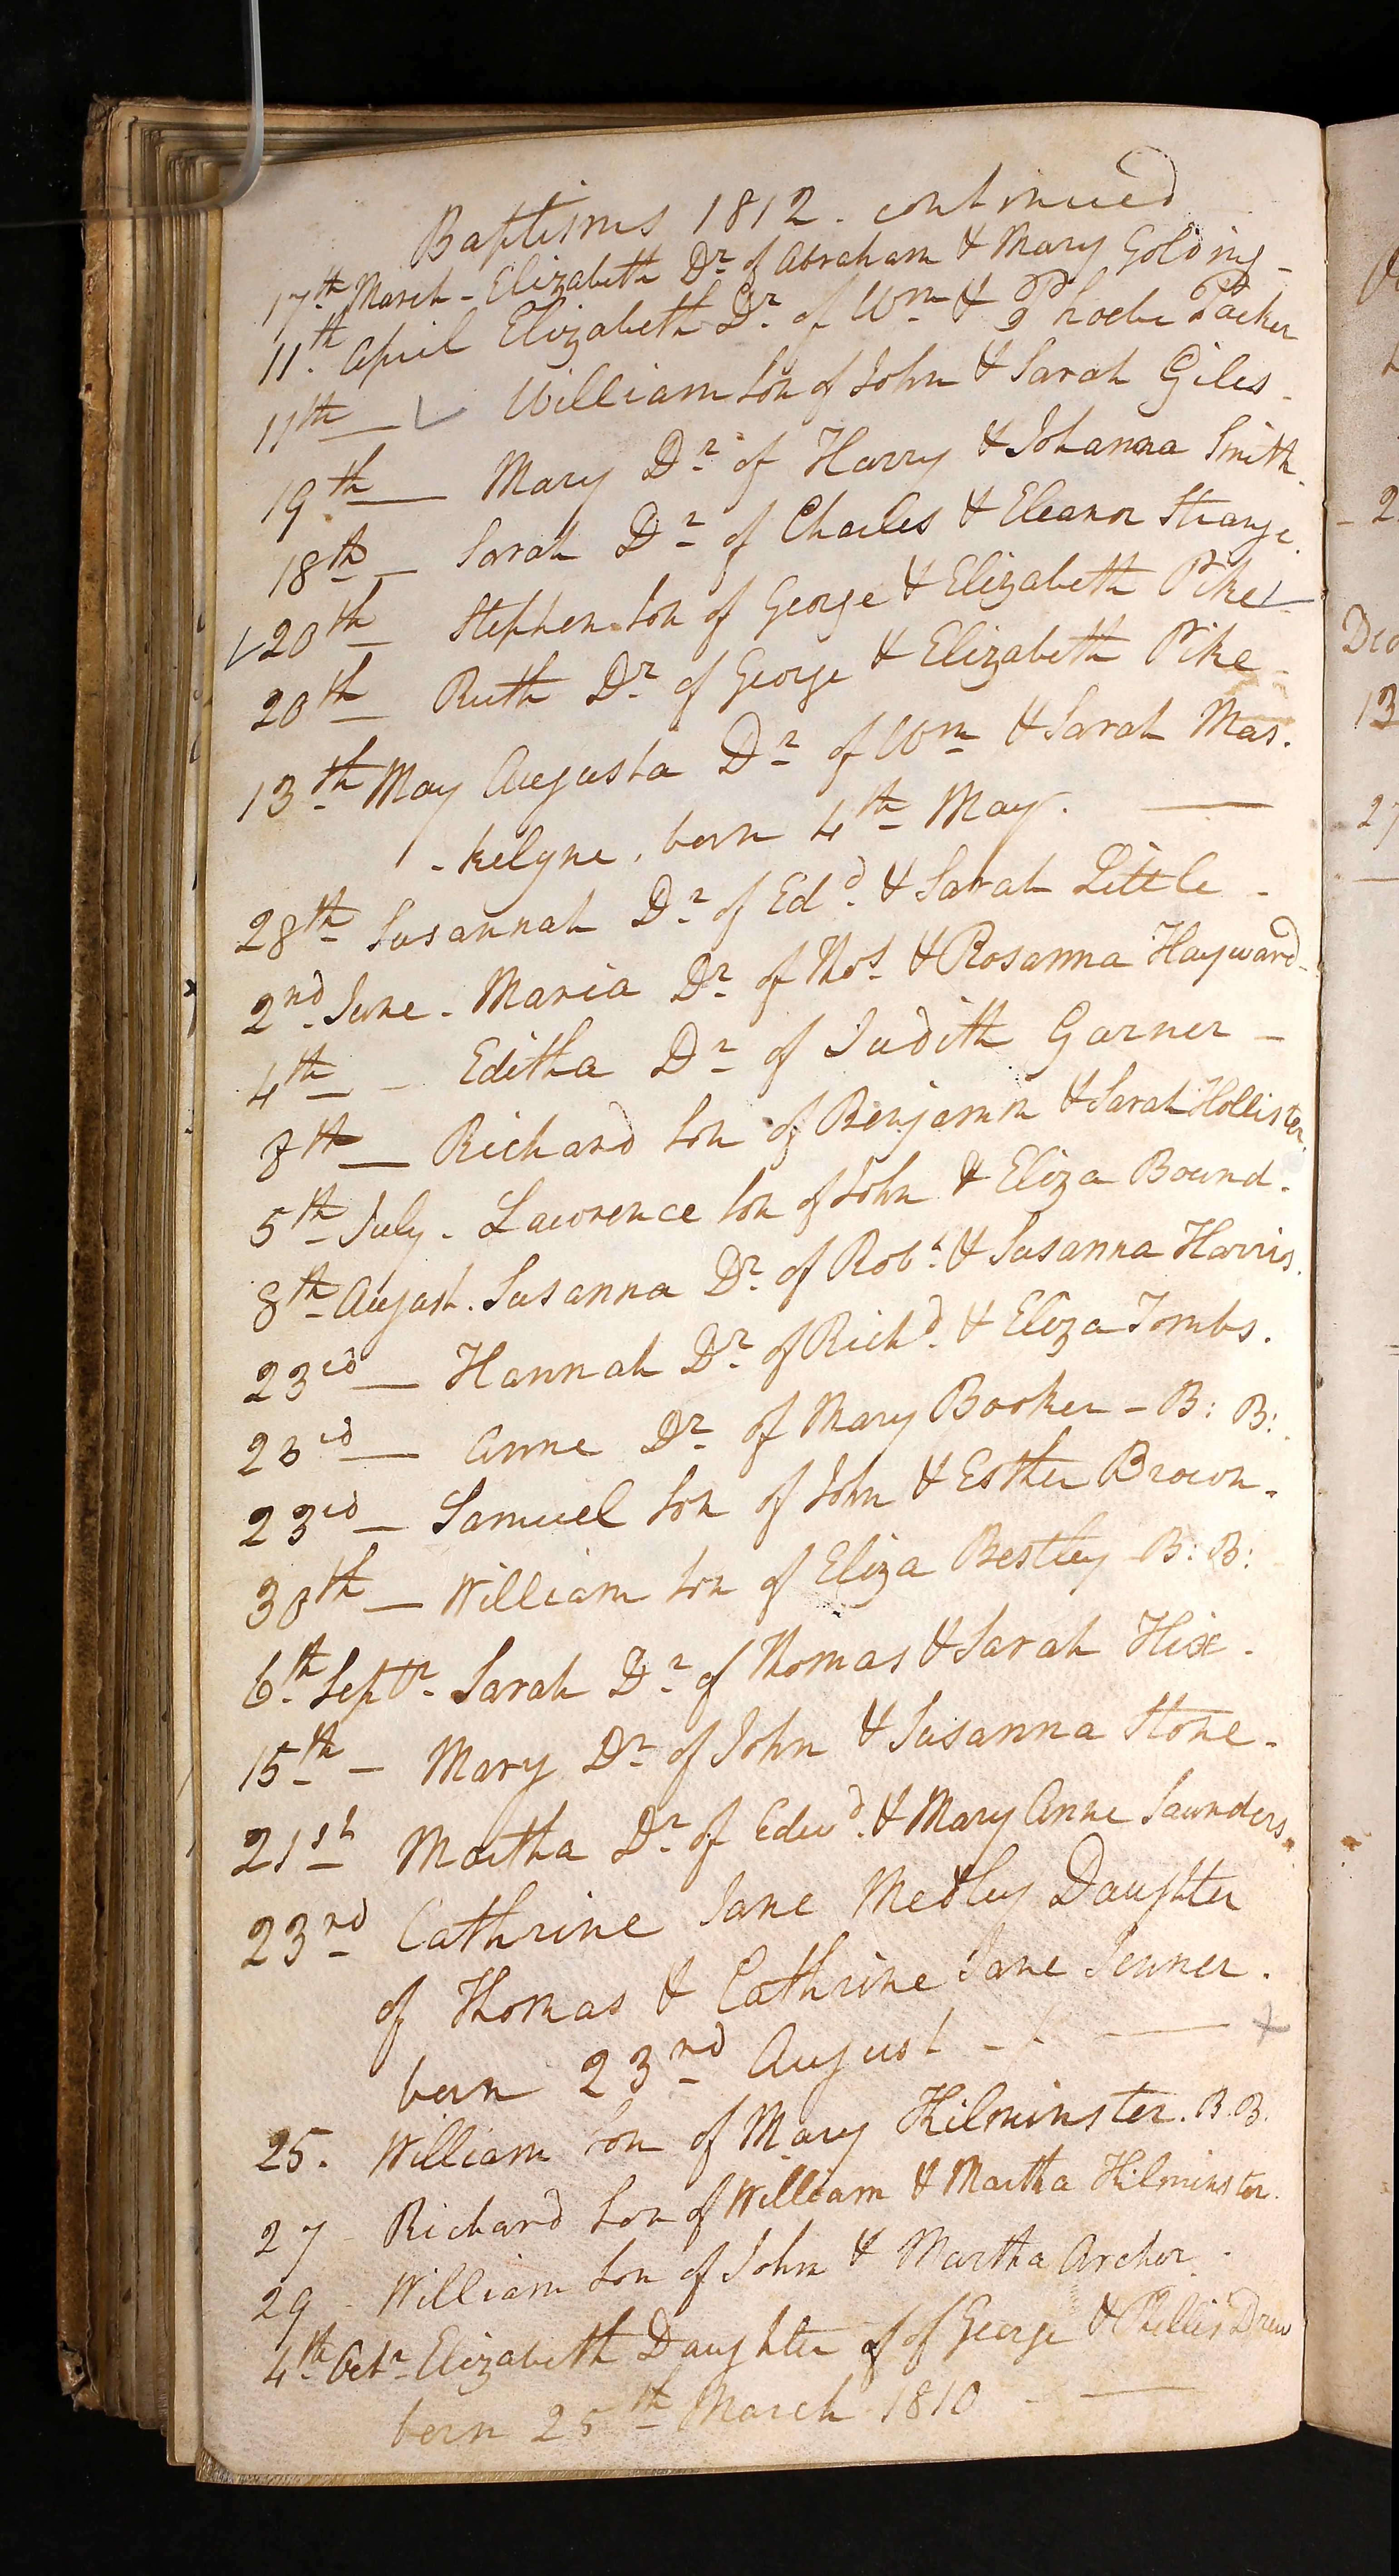 Baptisms 1812. continued
17th March - Elizabeth Dr of Abraham & Mary Golding -
11th April Elizabeth Dr of Wm & Phoebe Packer
11th — William Son of John & Sarah Giles -
19th — Mary Dr of Harry & Johanna Smith.
18th — Sarah Dr of Charles & Eleanor Strange.
20th — Stephen Son of George & Elizabeth Pike
20th — Ruth Dr of George & Elizabeth Pike -
13th May Augusta Dr of Wm & Sarah Mas.
-kelyne, born 4th May. —
28th Susannah Dr of Edd & Sarah Little -
2nd June - Maria Dr of Thos & Rosanna Hayward -
4th - Editha Dr of Judith Garner -
8th — Richard Son of Benjamin & Sarah Hollister
5th July - Lawrence Son of John & Eliza Bound.
8th August. Susanna Dr of Robt & Susanna Harris.
23rd — Hannah Dr of Richd & Eliza Tombs.
23rd — Anne Dr of Mary Booker - B: B:
23rd — Samuel Son of John & Esther Brown.
30th — William Son of Eliza Bestley B: B:
6th Septr Sarah Dr of Thomas & Sarah Hix.
15th — Mary Dr of John & Susanna Stone.
21st Martha Dr of Edwd & Mary Anne Saunders.
23rd Cathrine Jane Medley Daughter
of Thomas & Cathrine Jane Jenner.
born 23rd August - — x
25. William Son of Mary Kilminster. B.B.
27 - Richard Son of William & Martha Kilminster.
29 - William Son of John & Martha Archer.
4th Octr Elizabeth Daughter of of George & Phillis Drew
born 25th March 1810 —
Dec
13
27